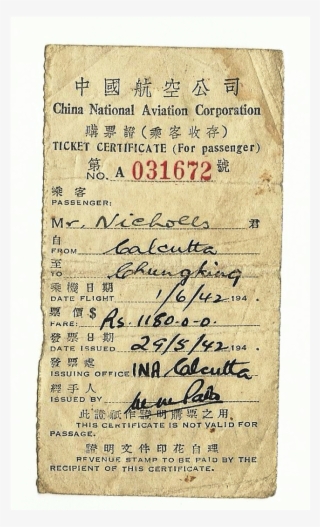 中國航空公司
China National Aviation Corporation
購票證(乘客收存)
TICKET CERTIFICATE (For passenger)
第 NO. A 031672 號
乘客
PASSENGER:
Mr. Nicholls 君
自
FROM Calcutta
至
TO Chungking
乘機日期
DATE FLIGHT 1/6/42 194 .
票價 $
FARE: Rs. 1180-0-0.
發票日期
DATE ISSUED 29/5/42 194 .
發票處
ISSUING OFFICE INA Calcutta
經手人
ISSUED BY
此證祇作證明購票之用。
THIS CERTIFICATE IS NOT VALID FOR
PASSAGE.
證明文件印花自理
REVENUE STAMP TO BE PAID BY THE
RECIPIENT OF THIS CERTIFICATE.